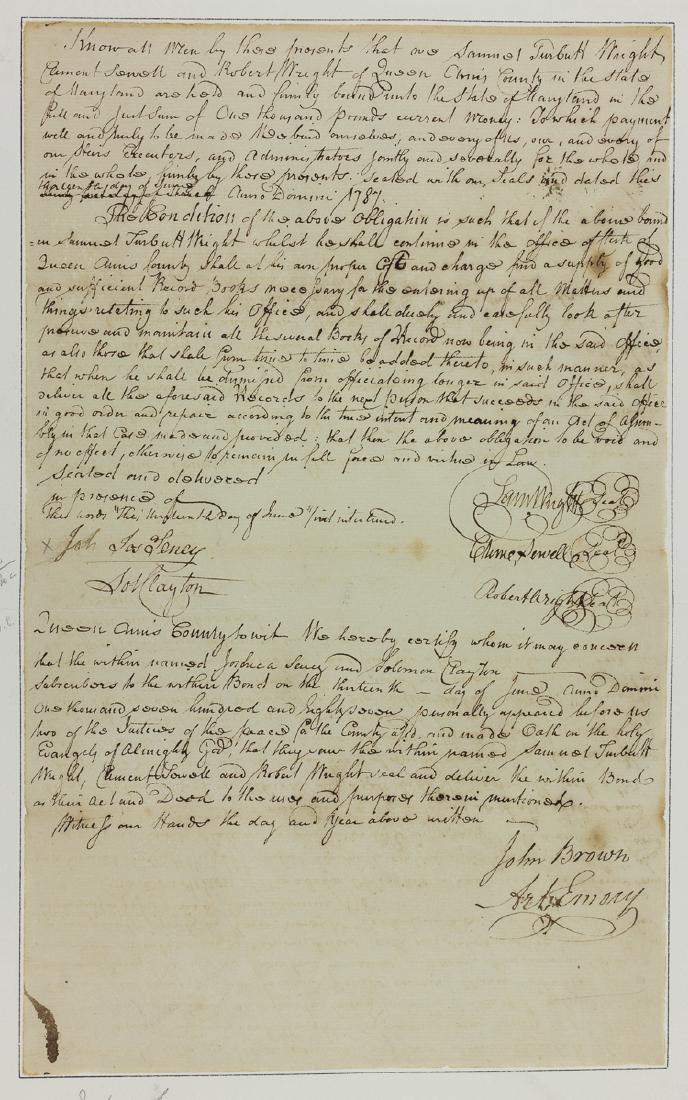 Know all Men by these presents that we Samuel Turbutt Wright
Clement Sewell and Robert Wright of Queen Anns County in the State
of Maryland are held and firmly bound unto the State of Maryland in the
full and Just Sum of One thousand pounds current Money: To which payment
well and truly to be made we bind ourselves, and every of us, our, and every of
our Heirs Executors, and Administrators Jointly and severally for the whole and
in the whole, firmly by these presents. Sealed with our Seals and dated this
thirteenth day of June Anno Domini 1787.
The Condition of the above Obligation is such that if the above bound
-en Samuel Turbutt Wright whilst he shall continue in the office of Clerk of
Queen Anns County shall at his own proper Cost and charge find a supply of good
and sufficient Record Books necessary for the entering up of all Matters and
things relating to such his Office, and shall duely and carefully look after
preserve and maintain all the several Books of Record now being in the said Office,
as also those that shall from time to time be added thereto, in such manner, as
that when he shall be dismised from officiateing longer in said Office, shall
deliver all the aforesaid Records to the next Person that succeeds in the said Office
in good order and repair according to the true intent and meaning of an Act of Assem-
bly in that Case made and provided: that then the above obligation to be void and
of no effect, otherwise to remain in full force and virtue in Law.
Sealed and delivered
in presence of
the words "This thirteenth day of June" first interlined.
Sam Wright Seal
X Joh Jos Seney
Clemt Sewell Seal
Sol Clayton
Robert Wright Seal
Queen Anns County to wit We hereby certify whom it may concern
that the within named Joshua Seney and Solomon Clayton
Subscribers to the within Bond on the thirteenth - day of June Anno Domini
One thousand seven hundred and Eighty seven personally appeared before us
two of the Justices of the peace for the County afsd. and made Oath on the holy
Evangels of Almighty God, that they saw the within named Samuel Turbutt
Wright, Clement Sewell and Robert Wright seal and deliver the within Bond
as their act and Deed to the uses and purposes therein mentioned.
Witness our Hands the day and Year above written -
John Brown
Ar Emory